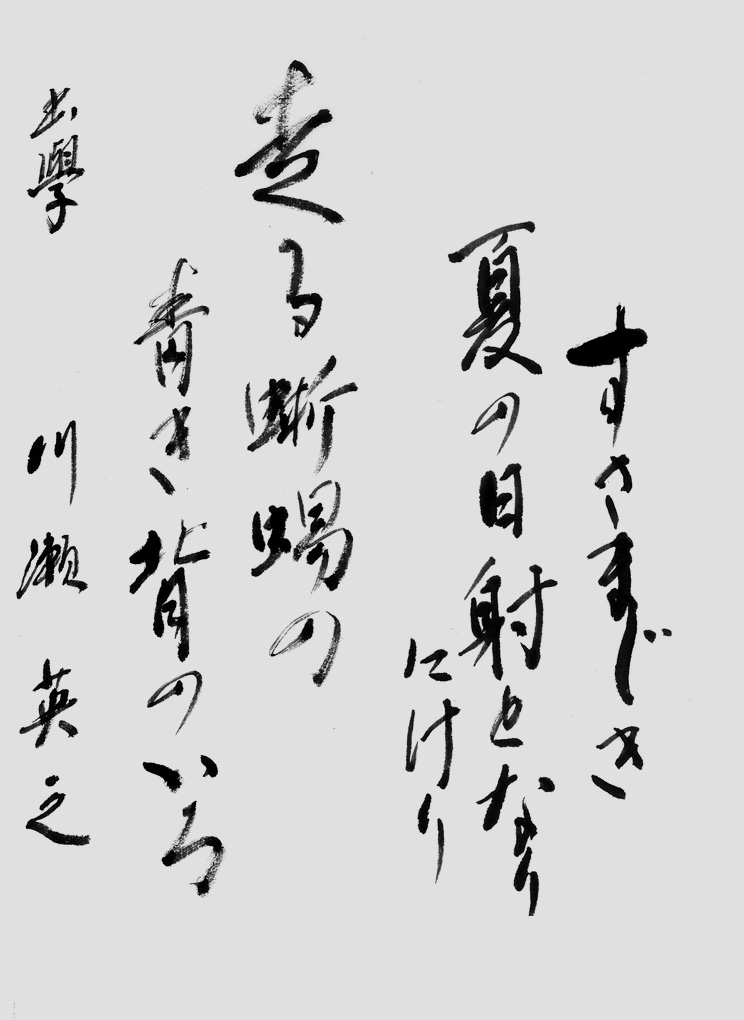 すさまじき
夏の日射となり
にけり
走る蜥蜴の
青き背のいろ
出學 川瀬英之